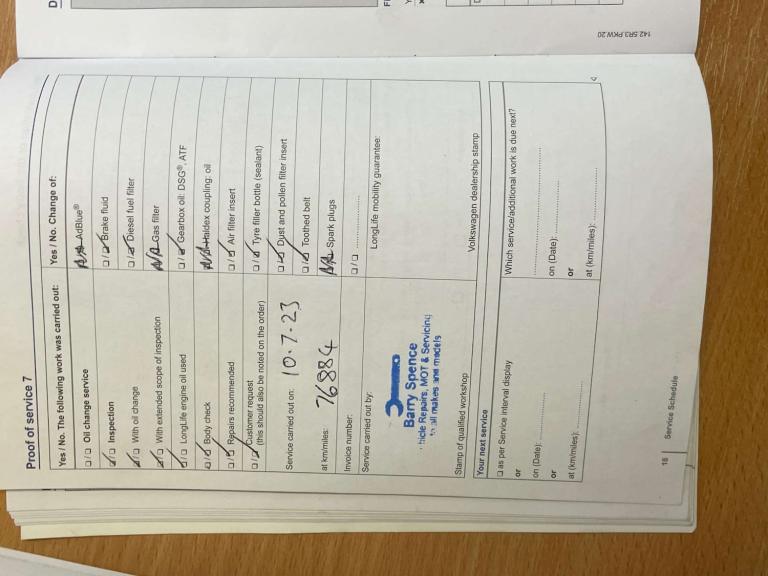 Proof of service 7
Yes / No. The following work was carried out:
Yes / No. Change of:
Oil change service
Inspection
With oil change
With extended scope of inspection
LongLife engine oil used
Body check
Repairs recommended
Customer request
(this should also be noted on the order)
N/A AdBlue®
Brake fluid
Diesel fuel filter
N/A Gas filter
Gearbox oil: DSG®, ATF
N/A Haldex coupling: oil
Air filter insert
Tyre filler bottle (sealant)
Dust and pollen filter insert
Toothed belt
Spark plugs
Service carried out on: 10.7.23
at km/miles: 76884
Invoice number:
Service carried out by:
LongLife mobility guarantee:
Barry Spence
hicle Repairs, MOT & Servicing
to all makes and models
Stamp of qualified workshop
Volkswagen dealership stamp
Your next service
as per Service interval display
or
on (Date):
or
at (km/miles):
Which service/additional work is due next?
on (Date):
or
at (km/miles):
18 | Service Schedule
142.5R3.PKW.20